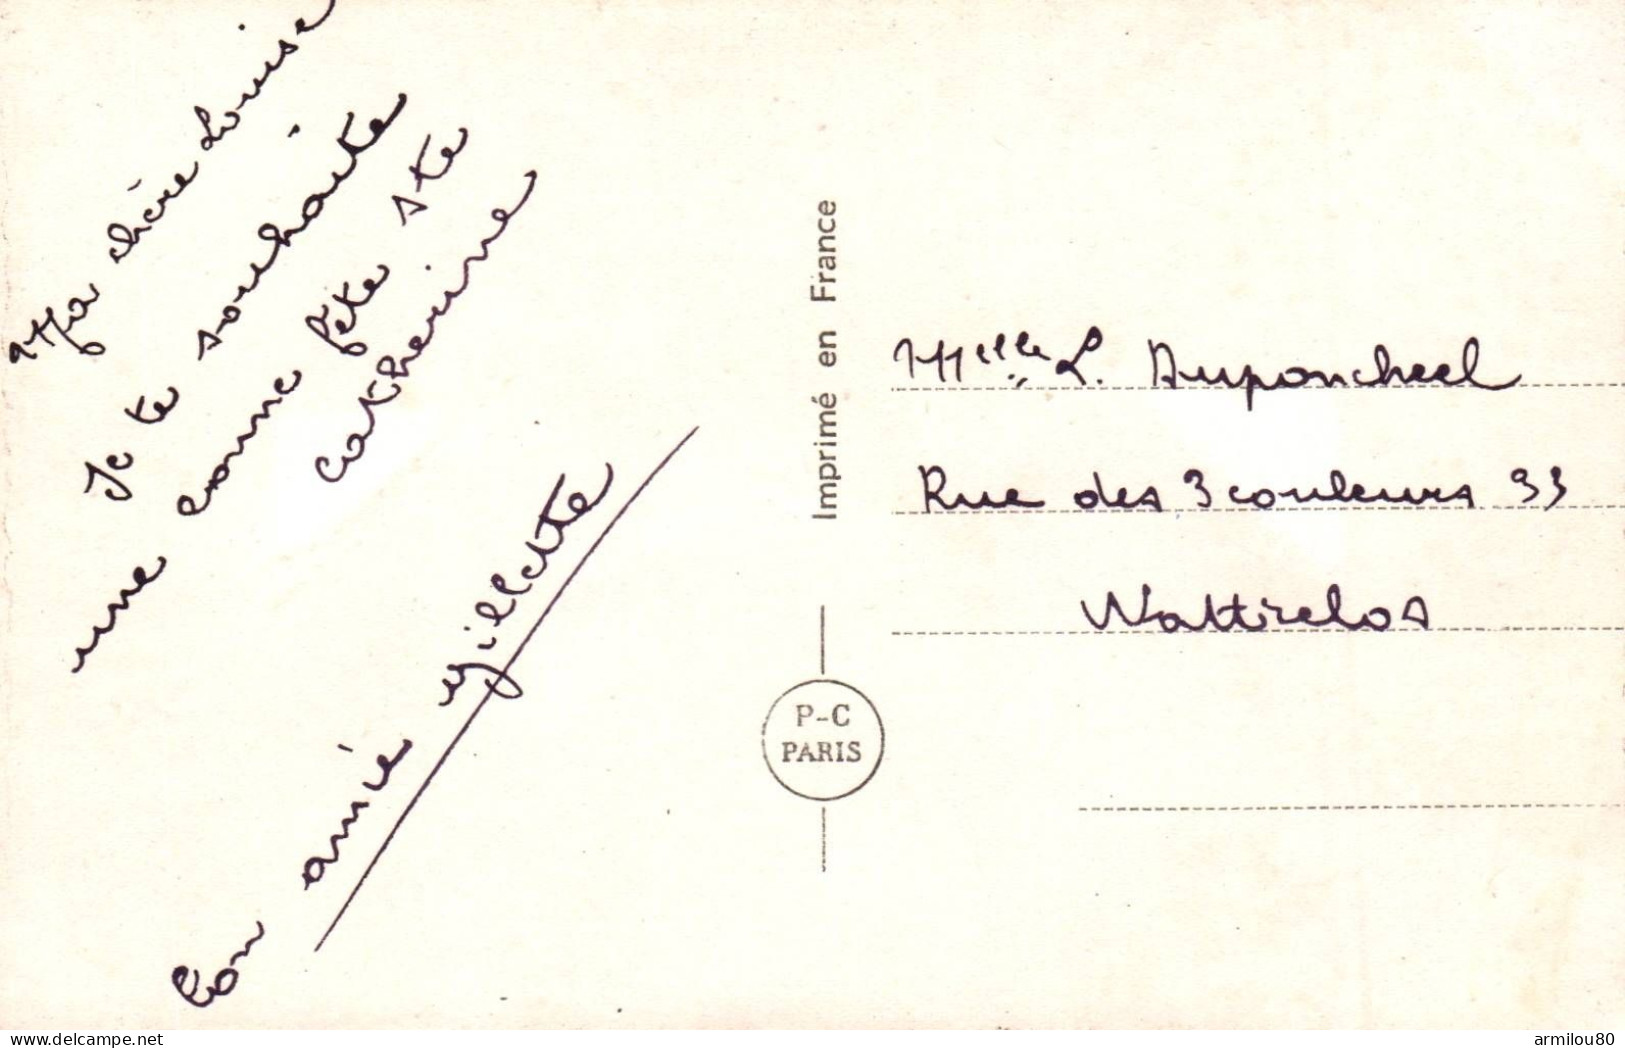 Ma chère Louise
Je te souhaite
une bonne fête Ste
Catherine
Ton amie Gillette
Imprimé en France
P-C
PARIS
Melle L. Duponcheel
Rue des 3 couleurs 33
Wattrelos
delcampe.net
armilou80